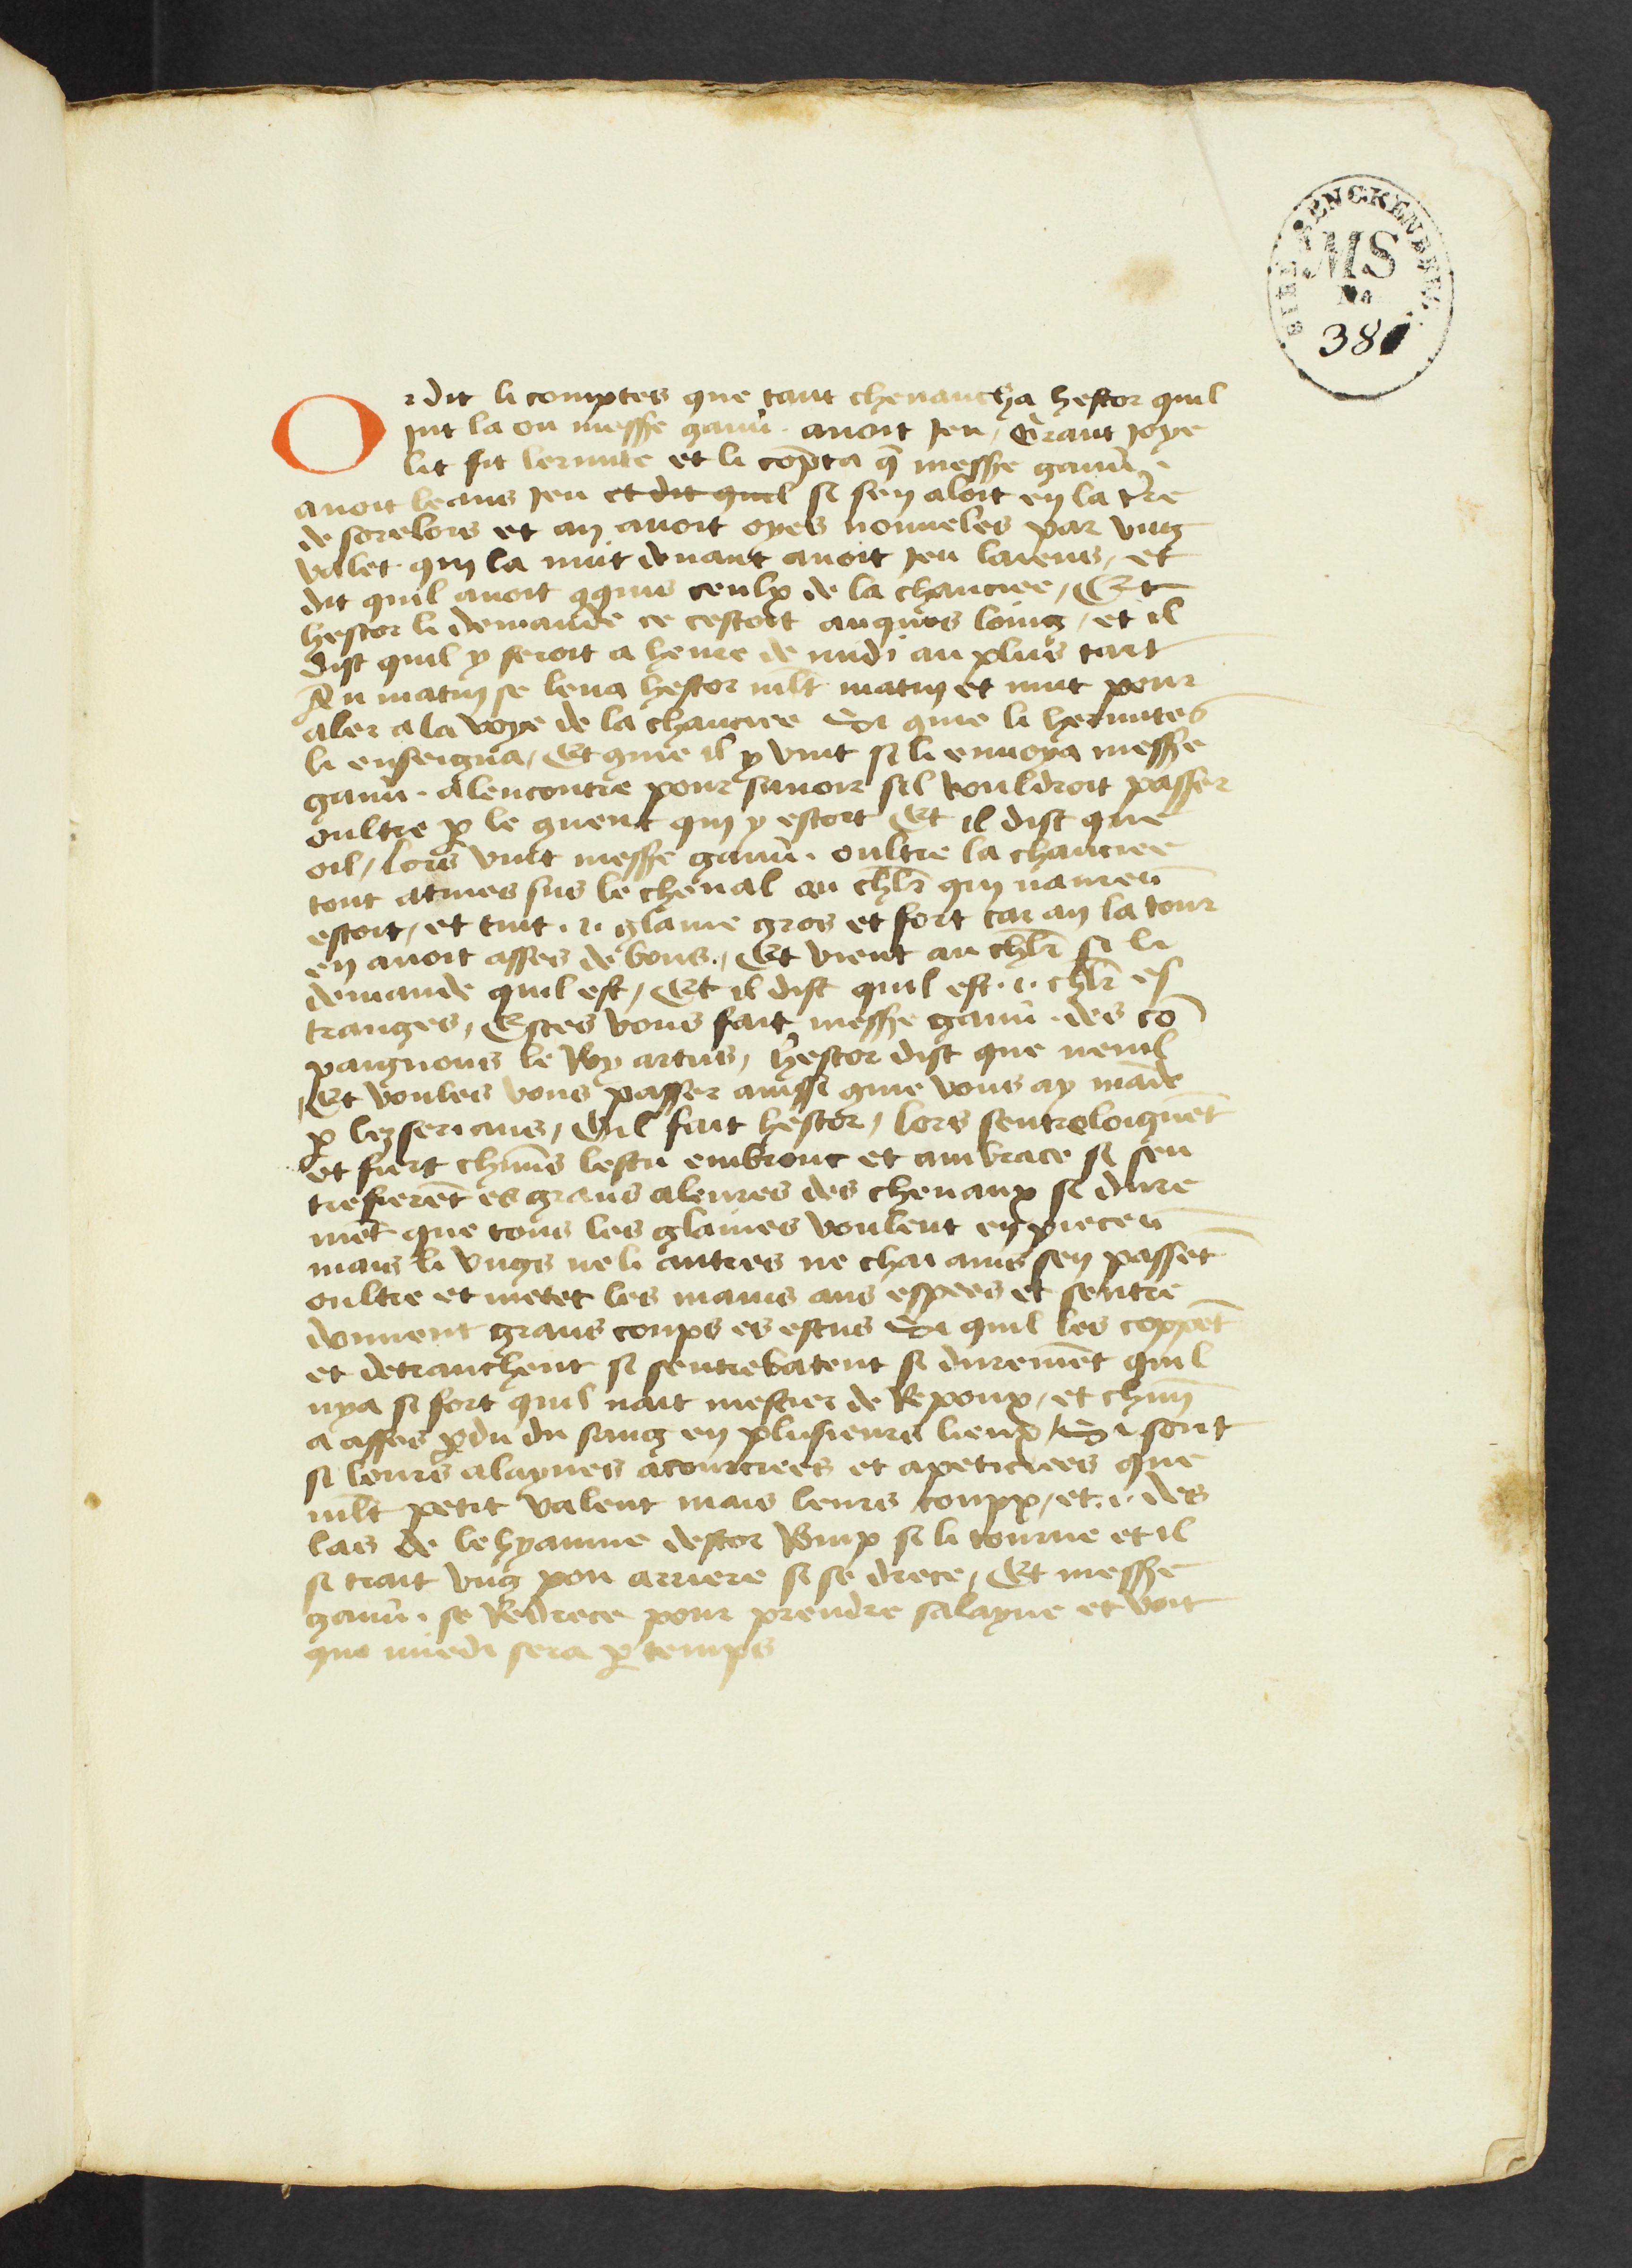 BIBL. SENCKENBERG.
MS
No
381
Or dit li comptes que tant cheuaucha hestor quil
jut la ou messe gauu̅. auoit jeu, Grant joye
lit fit lermite et li co̅pta q̅ messe gauu̅.
auoit leans jeu et dit quil si sen aloit en la t're
de sorelois et an auoit oyes nouueles par vng
valet. qui la nuit deuant auoit jeu laiens, et
dit quil auoit 9quis ceulx de la chauciee, Et
hestor li demande ce cestoit auques loing, et il
dist quil y seroit a heure de midi au plus tart
Au matin se leua hestor ml̅t matin et mut pour
aler a la voye de la chauciee Si que li hermites
li enseigna, Et que il y vint si li enuoya messe
gauu̅. alencontre pour sauoir sil vouldroit passer
oultre p̱ le guent qui y estoit Et il dist que
oil, lors vint messe gauu̅. oultre la chauciee
tout armes sus le cheual au ch̅lr qui naures
estoit, et tint .i. glaiue gros et fort car an la tour
en auoit asses de bons., Et vient au ch̅lr si li
demande quil est, Et il dist quil est .i. ch̅lr es
tranges, Estes vous fait messe gauu̅. des co̅
paignons le Roy artus, hestor dist que nenil
Et voules vous passer aussi que vous ay ma̅de
p̱ lez serians, Oil fait hestor, lors sentreloigne̅t
et fiert ch̅u̅s lescu enbronc et ambrace si sen
trefiere̅t es grans aleures des cheuaux si dure
me̅t que tous les glaiues voulent en pieces
mais li vngs ne li autres ne chai ains sen passe̅t
oultre et metet les mains aus espees et sentre
donnent grans coups es escus Si quil les coppe̅t
et detranchent si sentrebatent si dureme̅t quil
nya si fort quil nait mestier de Repoux, et chu̅n
a asses p̱du du sang en plusieurs lieux, Si sont
si leurs alaynes acourciees et apeticiees que
ml̅t petit valent mais leurs coupp, et .i. des
las de lehyaume destor Ronp si li tourne et il
si trait vng pou arriere si se drece, Et messe
gauu̅. se Redrece pour prendre salayne et voit
que miedi sera p̱ temps